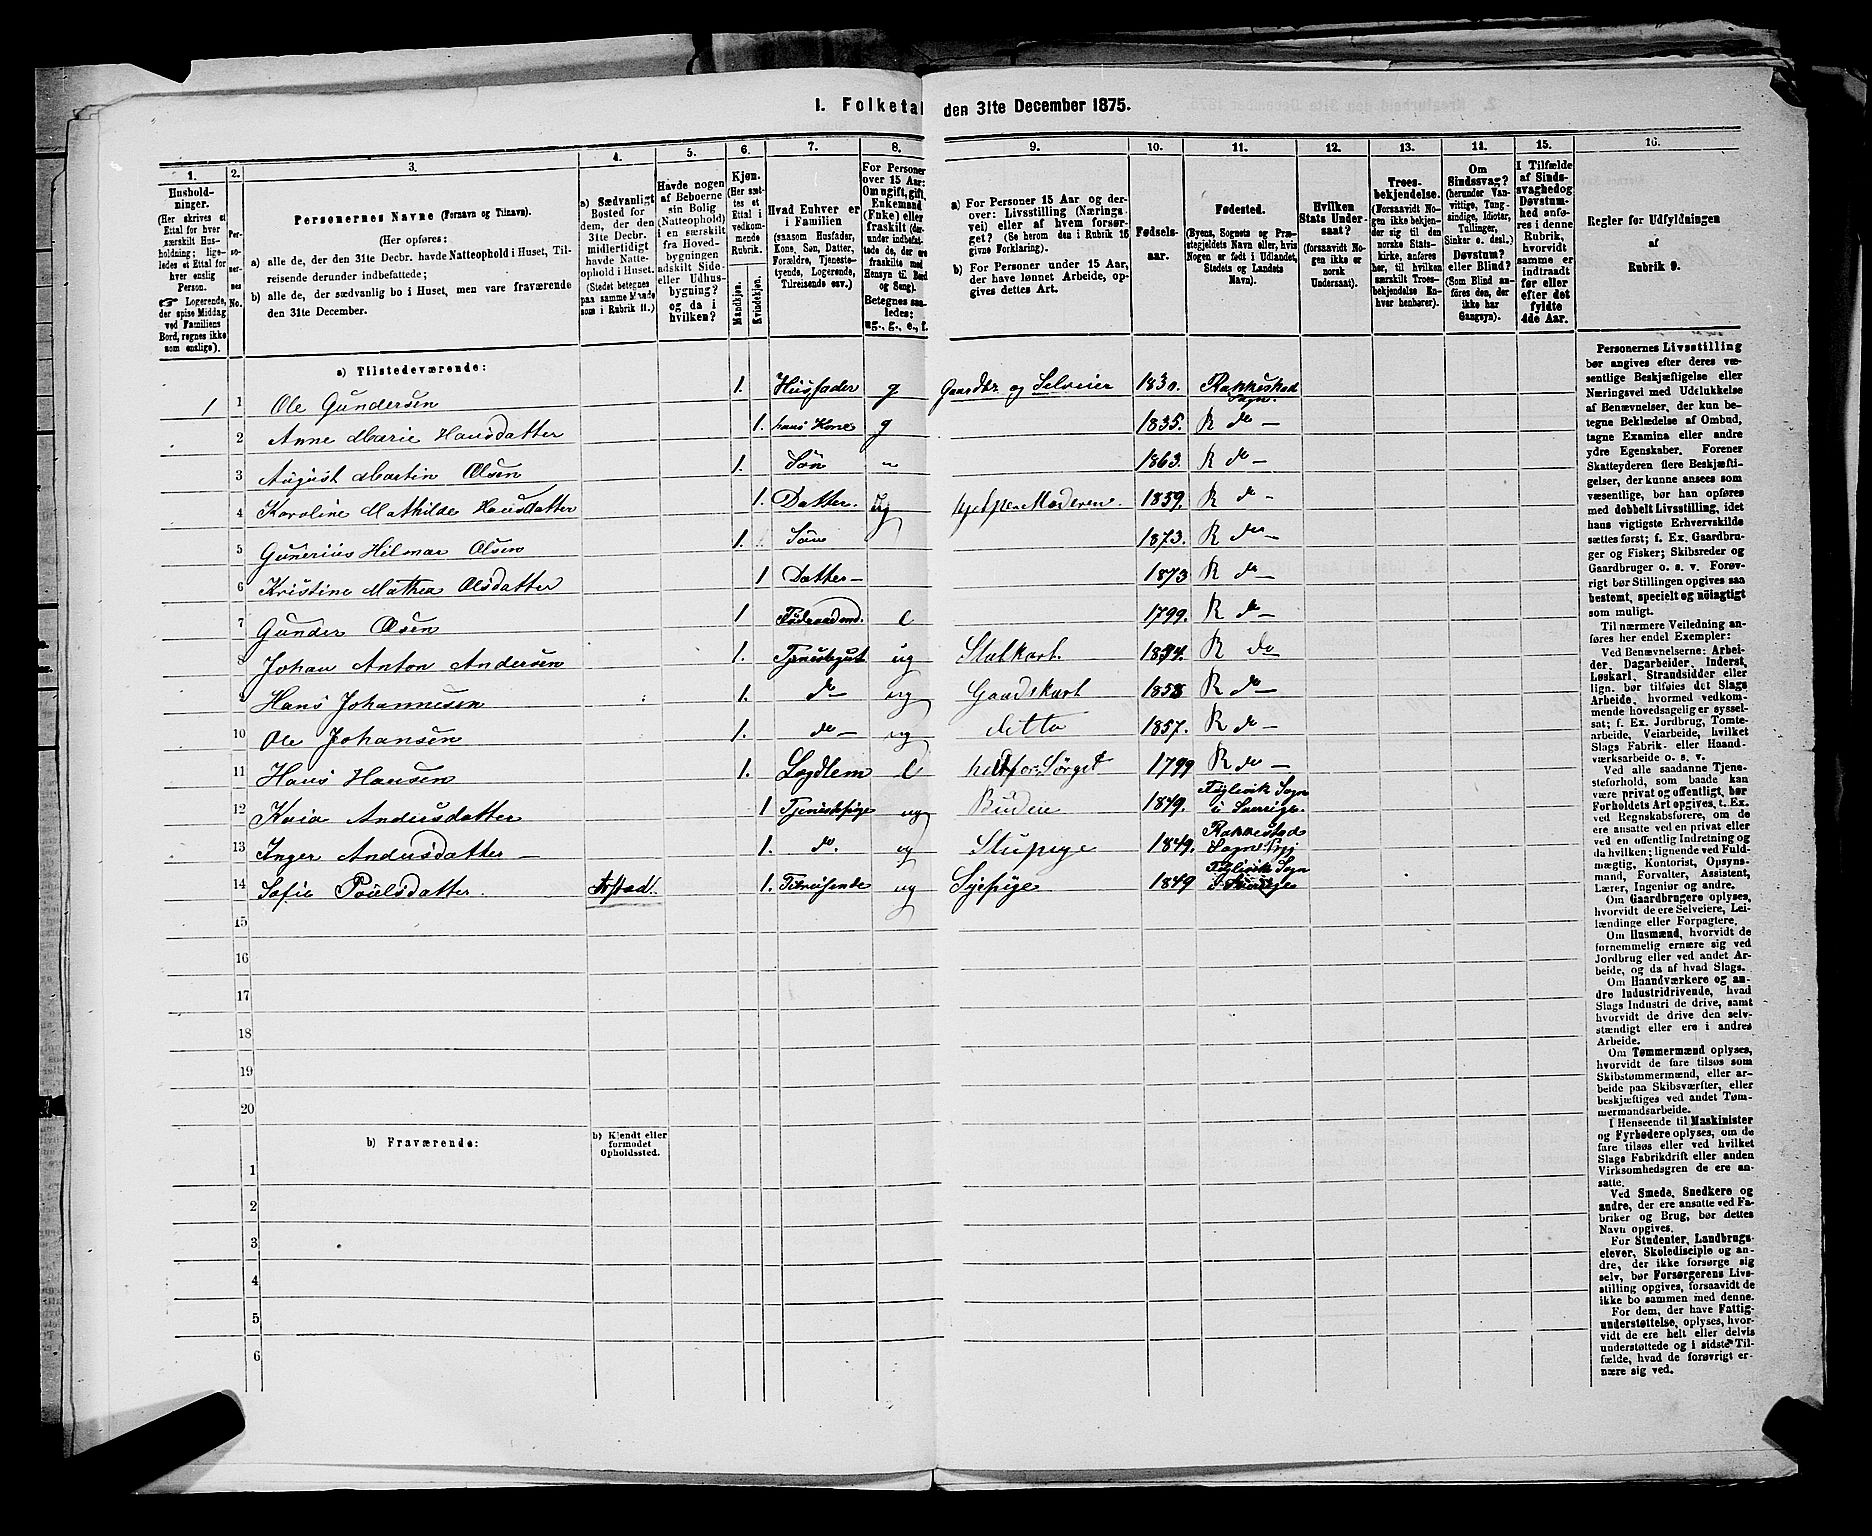 1. Folketal den 31te December 1875.
1. 2. 3. 4. 5. 6. 7. 8. 9. 10. 11. 12. 13. 14. 15. 16.
Husholdninger.
(Her skrives et Ettal for hver særskilt Husholdning; ligeledes et Ettal for hver enslig Person.
☞ Logerende, der spise Middag ved Familiens Bord, regnes ikke som enslige).
Personernes No.
Personernes Navne (Fornavn og Tilnavn).
(Her opføres:
a) alle de, der den 31te Decbr. havde Natteophold i Huset, Tilreisende derunder indbefattede;
b) alle de, der sædvanlig bo i Huset, men vare fraværende den 31te December.
a) Sædvanligt Bosted for dem, der den 31te Decbr. midlertidigt havde Natteophold i Huset. (Stedet betegnes paa samme Maade som i Rubrik 11.)
Havde nogen af Beboerne sin Bolig (Natteophold) i en særskilt fra Hovedbygningen adskilt Side- eller Udhusbygning? og da i hvilken?
Kjøn. (Her sættes et Ettal i vedkommende Rubrik.
Mandkjøn. Kvindekjøn.
Hvad Enhver er i Familien
(saasom Husfader, Kone, Søn, Datter, Forældre, Tjenestetyende, Logerende, Tilreisende osv.)
For Personer over 15 Aar: Om ugift, gift, Enkemand (Enke) eller fraskilt (derunder indbefattede de, der ere fraskilte med Hensyn til Bord og Seng). Betegnes saaledes: ug., g., e., f.
a) For Personer 15 Aar og derover: Livsstilling (Næringsvei) eller af hvem forsørget? (Se herom den i Rubrik 16 givne Forklaring).
b) For Personer under 15 Aar, der have lønnet Arbeide, opgives dettes Art.
Fødselsaar.
Fødested.
(Byens, Sognets og Præstegjeldets Navn eller, hvis Nogen er født i Udlandet, Stedets og Landets Navn).
Hvilken Stats Undersaat?
(forsaavidt Nogen ikke er norsk Undersaat).
Troesbekjendelse.
(Forsaavidt Nogen ikke bekjender sig til den norske Statskirke, anføres her, til hvilken særskilt Troesbekjendelse Enhver henhører).
Om Sindssvag? (herunder Vanvittige, Tungsindige, Idioter, Tullinger, Sinker o. desl.) Døvstum? eller Blind? (Som Blind anføres den, der ikke har Gangsyn).
I Tilfælde af Sindssvaghed og Døvstumhed anføres i denne Rubrik, hvorvidt samme er indtraadt før eller efter det fyldte 4de Aar.
Regler for Udfyldningen af Rubrik 9.
a) Tilstedeværende:
1 1 Ole Gundersen 1. Husfader g Gaardbr. og Selveier 1830. Rakkestad Sogn.
2 Anne Marie Hansdatter 1. hans Kone g 1835. R do —
3 August Martin Olsen 1. Søn „ 1863. R do —
4 Karoline Mathilde Hansdatter 1. Datter. ug hjelper Moderen. 1859. R do —
5 Gunerius Hilmar Olsen 1. Søn 1873. R do —
6 Kristine Mathea Olsdatter 1 Datter — 1873 R do —
7 Gunder Olsen 1 Føderaadmd. e 1799. R do —
8 Johan Anton Andersen 1. Tjenestegut ug Stalkart. R do
9 Hans Johannesen 1. do — ug Gaardskart 1858 R do —
10 Ole Johansen 1. do — ug ditto 1857. R do —
11 Hans Hansen 1. Lægdlem e 1799 R do —
12 Kaia Andersdatter 1 Tjenestepige ug Budeie 1849. Sogn i Sverige.
13 Inger Andersdatter — 1. do. ug Stupige 1849. Rakkestad Sogn
14 Sofie Poulsdatter. 1. Tilreisende ug Sypige 1849 Sogn i Sverige
15
16
17
18
19
20
b) Fraværende: b) Kjendt eller formodet Opholdssted.
1
2
3
4
5
6
Personernes Livsstilling
bør angives efter deres væsentlige
Beskjæftigelse eller
Næringsvei med Udelukkelse
af Benævnelser, der kun betegne
Beklædelse af Ombud,
tagne Examina eller andre
ydre Egenskaber. Forener
Skatteyderen flere Beskjæftigelser,
der kunne ansees som
væsentlige, bør han opføres
med dobbelt Livsstilling, idet
hans vigtigste Erhvervskilde
sættes først; f. Ex. Gaardbruger
og Fisker; Skibsreder og
Gaardbruger o. s. v. Forøvrigt
bør Stillingen opgives saa
bestemt, specielt og nøiagtigt
som muligt.
Til nærmere Veiledning anføres
her endel Exempler:
Ved Benævnelserne: Arbeider,
Dagarbeider, Inderst,
Løskarl, Strandsidder eller
lign. bør tilføies det Slags
Arbeide, hvormed vedkommende
hovedsagelig er sysselsat;
f. Ex. Jordbrug, Tomtearbeide,
Veiarbeide, hvilket
Slags Fabrik- eller Haandværksarbeide
o. s. v.
Ved alle saadanne Tjenesteforhold,
som baade kan
være privat og offentligt, bør
Forholdets Art opgives, t. Ex.
ved Regnskabsførere, om de
ere ansatte ved en privat eller
en offentlig Indretning og
da hvilken; lignende ved Fuldmægtig,
Kontorist, Opsynsmand,
Forvalter, Assistent,
Lærer, Ingeniør og andre.
Om Gaardbrugere oplyses,
hvorvidt de ere Selveiere, Leilændinge
eller Forpagtere.
Om Husmænd, hvorvidt de
fornemmelig ernære sig ved
Jordbrug eller ved andet Arbeide,
og da af hvad Slags.
Om Haandværkere og andre
Industridrivende, hvad
Slags Industri de drive, samt
hvorvidt de drive den selvstændigt
eller ere i andres
Arbeide.
Om Tømmermænd oplyses,
hvorvidt de fare tilsøs som
Skibstømmermænd, eller arbeide
paa Skibsværfter, eller
beskjæftiges ved andet Tømmermandsarbeide.
I Henseende til Maskinister
og Fyrbødere oplyses, om de
fare tilsøs eller ved hvilket
Slags Fabrikdrift eller anden
Virksomhedsgren de ere ansatte.
Ved Smede, Snedkere og
andre, der ere ansatte ved Fabriker
og Brug, bør dettes
Navn opgives.
For Studenter, Landbrugselever,
Skoledisciple og andre,
der ikke forsørge sig
selv, bør Forsørgerens Livsstilling
opgives, forsaavidt de
ikke bo sammen med denne.
For dem, der have Fattigunderstøttelse,
oplyses, hvorvidt
de ere helt eller delvis
understøttede og i sidste Tilfælde,
hvad de forøvrigt ernære
sig ved.